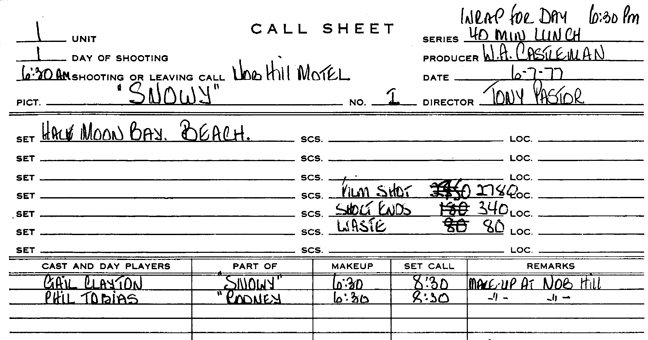 CALL SHEET
WRAP FOR DAY 6:30 PM
1 UNIT
SERIES 40 MIN LUNCH
1 DAY OF SHOOTING
PRODUCER W.A. CASTLEMAN
6:30 AM SHOOTING OR LEAVING CALL NOB HILL MOTEL
DATE 6-7-77
PICT. "SNOWY" NO. 1 DIRECTOR TONY PASTOR
SET HALF MOON BAY. BEACH. SCS. LOC.
SET SCS. LOC.
SET SCS. LOC.
SET SCS. FILM SHOT 2780 LOC.
SET SCS. SHORT ENDS 180 340 LOC.
SET SCS. WASTE 80 80 LOC.
SET SCS. LOC.
CAST AND DAY PLAYERS PART OF MAKEUP SET CALL REMARKS
GAIL CLAYTON "SNOWY" 6:30 8:30 MAKE-UP AT NOB HILL
PHIL TOBIAS "RODNEY 6:30 8:30 -"- -"-